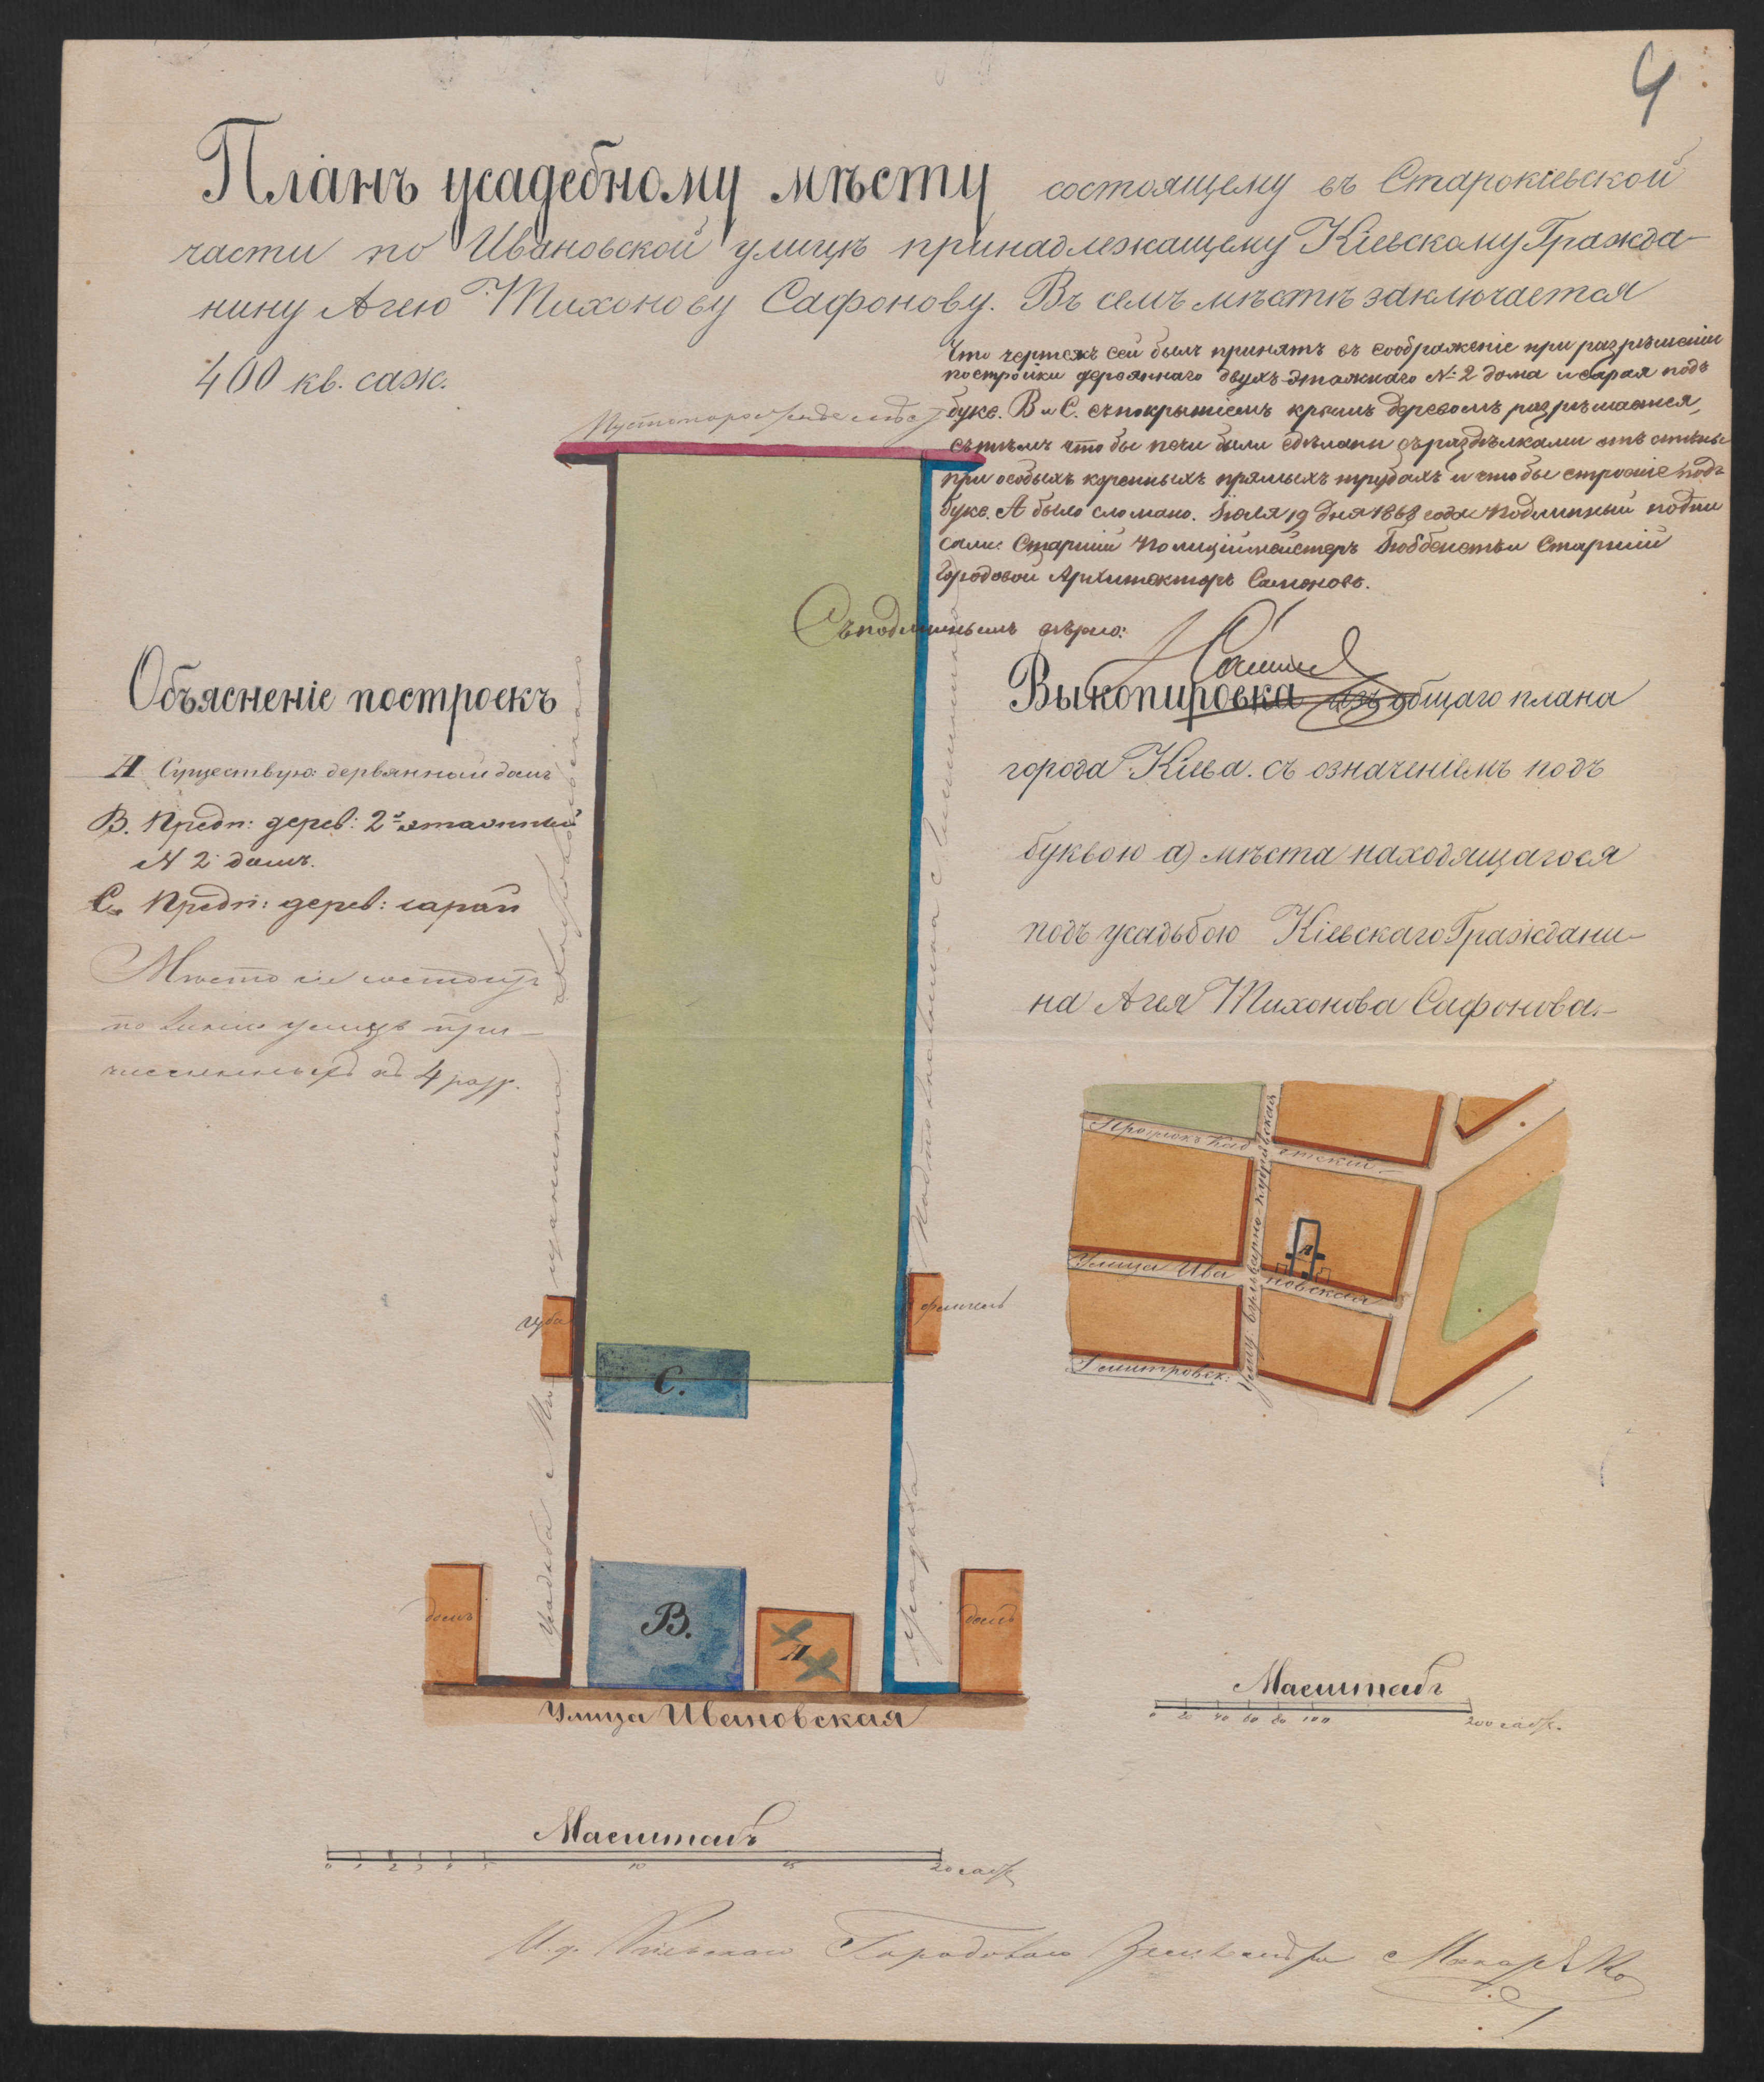 4
Планъ усадебному мѣсту состоящему въ Старокіевской
части по Ивановской улицѣ принадлежащему Кіевскому Гражда-
нину Агею Тихонову Сафонову. Въ семъ мѣстѣ заключается
400 кв. саж.
Что чертежъ сей былъ принятъ въ соображеніе при разрѣшеніи
постройки деревяннаго двухъ этажнаго № 2 дома и сарая подъ
букв. В и С. съ покрытіемъ крышъ деревомъ разрѣшается,
съ тѣмъ что бы печи были сдѣланы съ раздѣлками отъ стѣны
при особыхъ коренныхъ прямыхъ трубахъ и что бы строеніе подъ
букв. А было сломано. Іюля 19 дня 1868 года Подлинный подпи
сали: Старшій Полиціймейстеръ и Старшій
Городовой Архитекторъ
Съ подлиннымъ вѣрно:
Объясненіе построекъ
А Существую: деревянный домъ
В. Предп: дерев: 2хъ этажный
№ 2 домъ.
С. Предп: дерев: сарай
Мѣсто сіе состоитъ
по линіи улицъ при-
численныхъ къ 4 разр.
Выкопировка изъ общаго плана
города Кіева. съ означеніемъ подъ
буквою а) мѣста находящагося
подъ усадьбою Кіевскаго Граждани-
на Агея Тихонова Сафонова.-
Усадьба
усадьба
флигель
С.
В.
А
домъ
домъ
Улица Ивановская
Проэжокъ Кад етскій
Улица Ива новская
Улиц: Бульварно Кудрявская
А
Масштабъ
0 20 40 60 80 100 200 саж.
Масштабъ
0 1 2 3 4 5 10 15 20 саж
И. д. Кіевскаго Городоваго Землемѣра